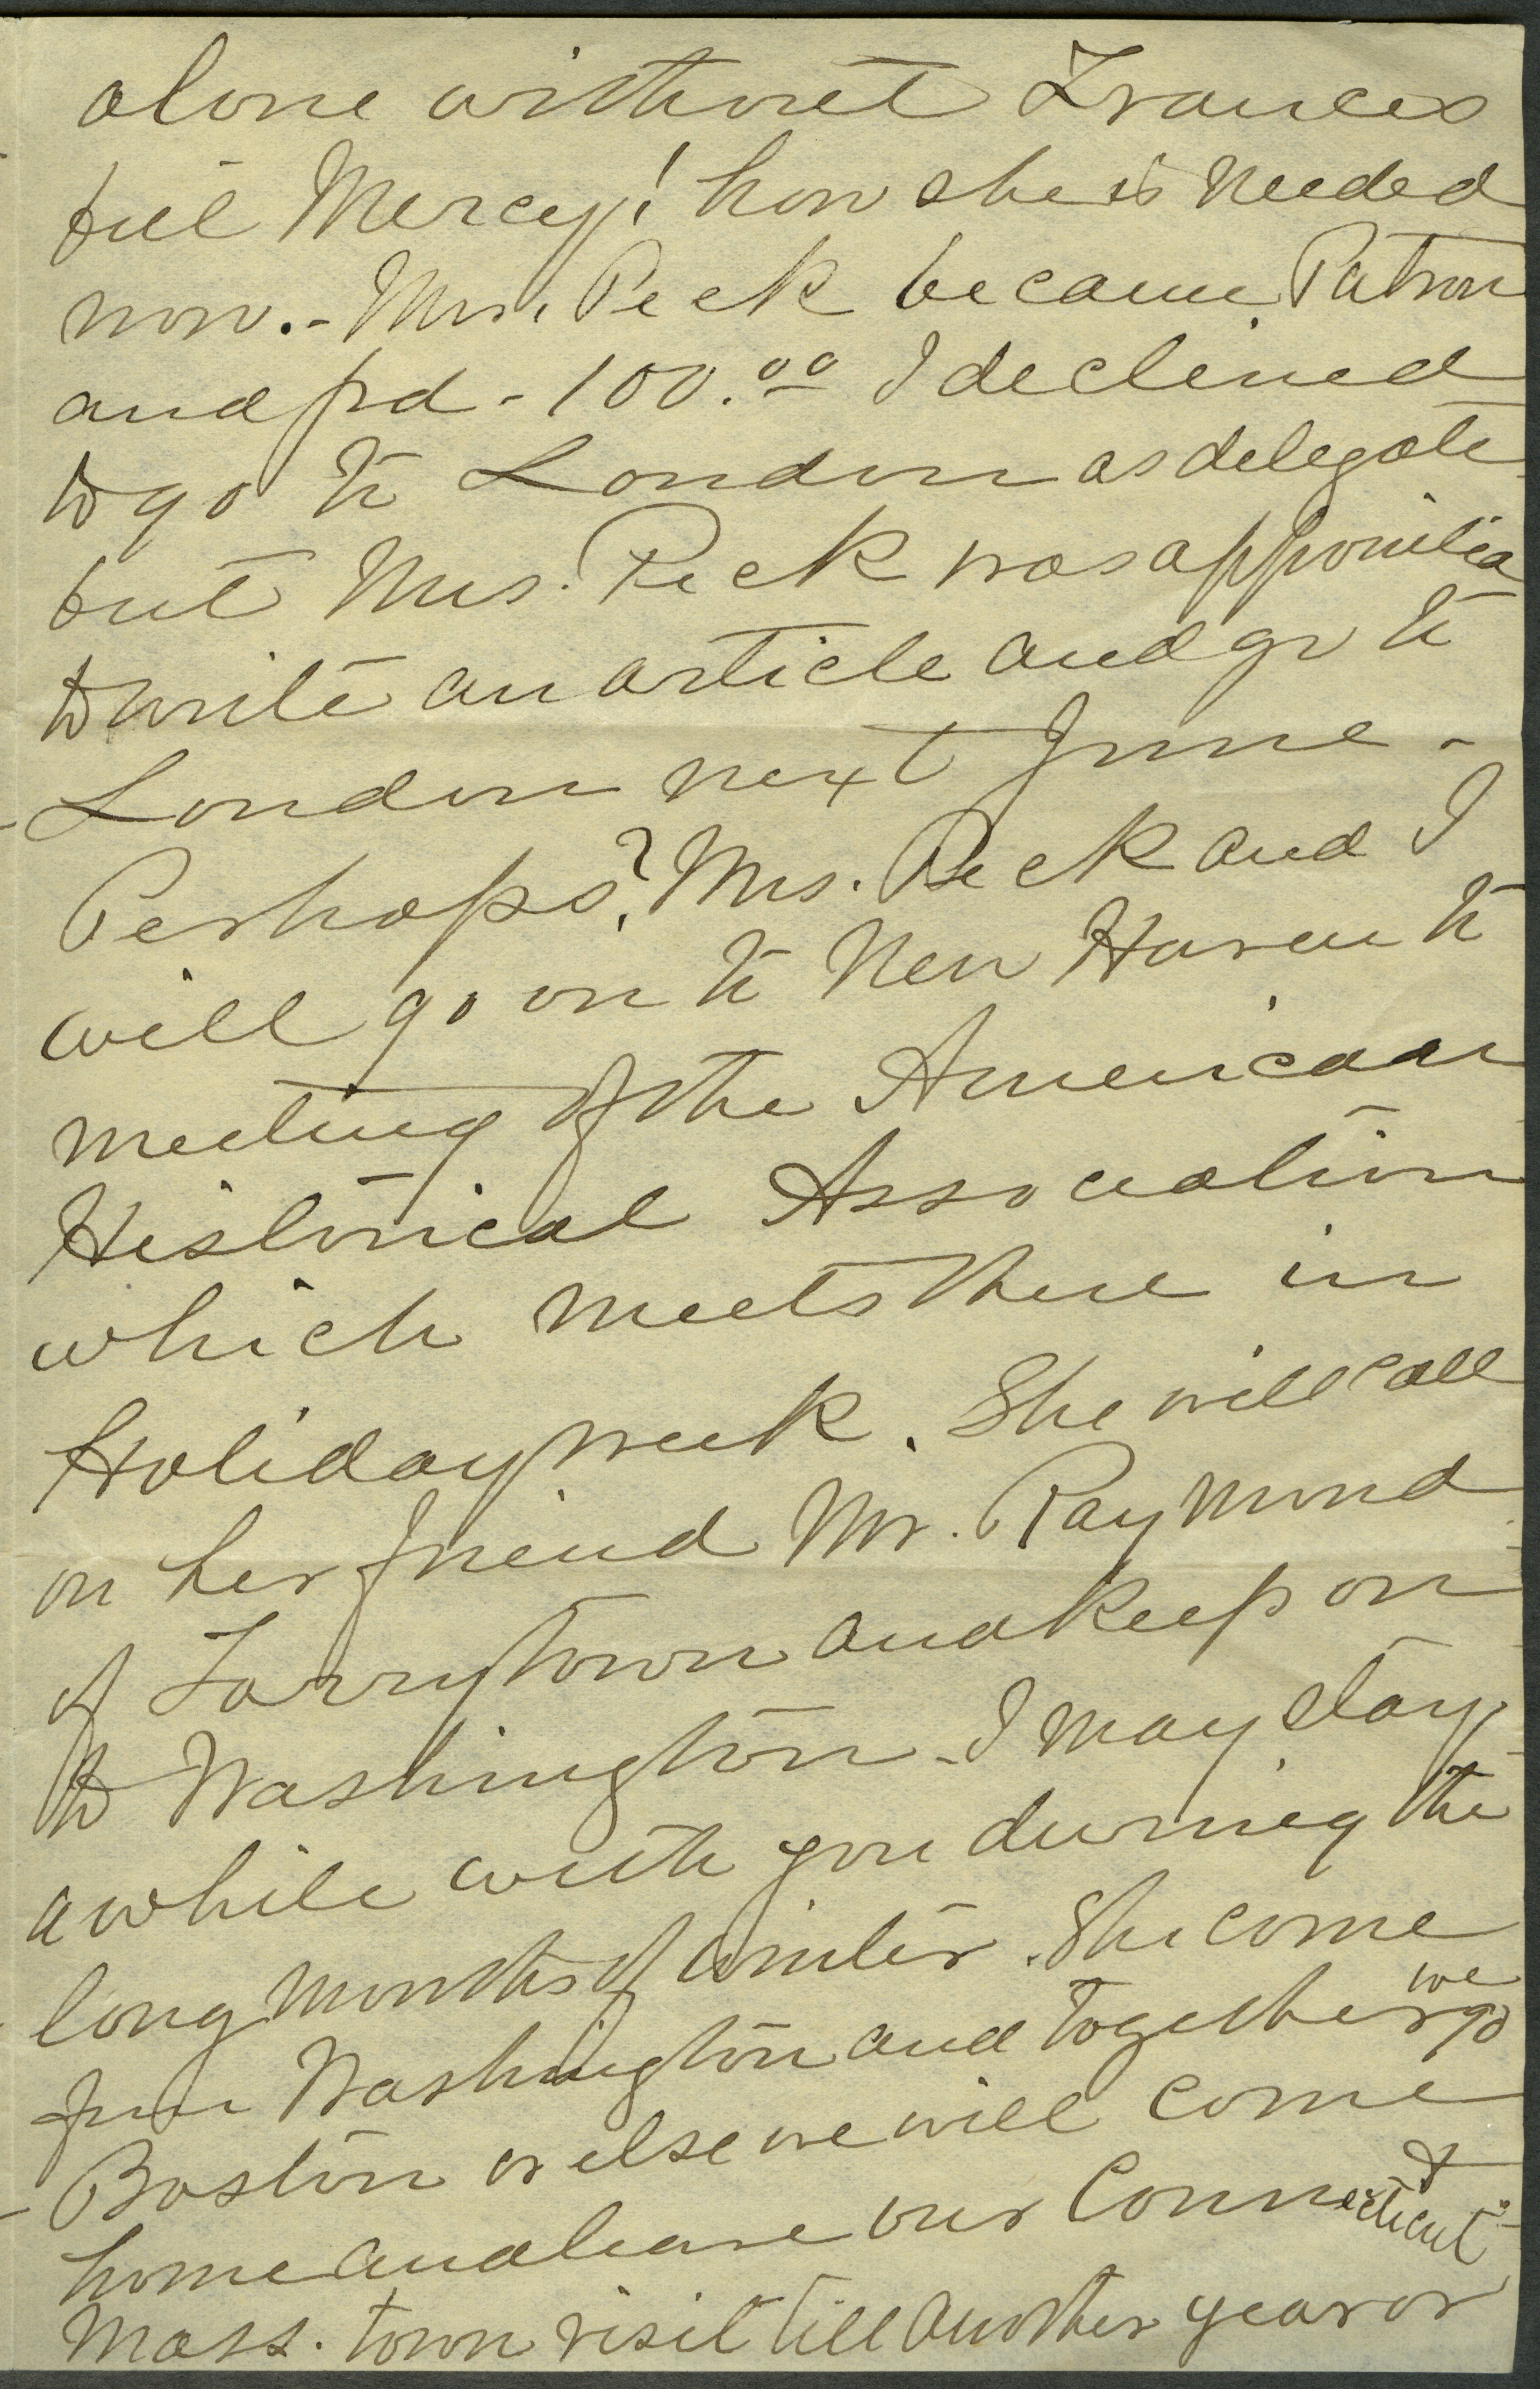 alone without Frances
but Mercy! how she is needed
now.- Mrs. Peck became Patron
and pd - 100.00 I declined
to go to London as delegate
but Mrs. Peck was appointed
to write an article and go to
London next June -
Perhaps? Mrs. Peck and I
will go on to New Haven to
meeting of the American
Historical Association
which meets there in
Holiday week. She will call
on her friend Mr. Raymond
of Tarrytown and keep on
to Washington - I may stay
a while with you during the
long months of winter. She come
from Washington and together we go
Boston or else we will come
home and leave our Connecticut &
Mass. town visit till another year or